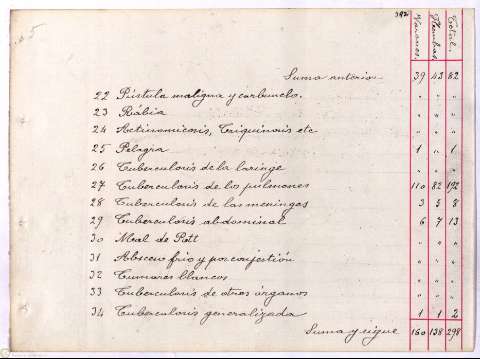 392
Varones. Hembras. Total.
Suma anterior 39 43 82
22 Pústula maligna y carbunclo. " " "
23 Rábia " " "
24 Actinomicosis, Triquinosis etc " " "
25 Pelagra 1 " 1
26 Tuberculosis de la laringe " " "
27 Tuberculosis de los pulmones 110 82 192
28 Tuberculosis de las meninges 3 5 8
29 Tuberculosis abdominal 6 7 13
30 Meal de Pott " " "
31 Absceso frio y por conjestión " " "
32 Tumores blancos " " "
33 Tuberculosis de otros órganos " " "
34 Tuberculosis generalizada 1 1 2
Suma y sigue 160 138 298